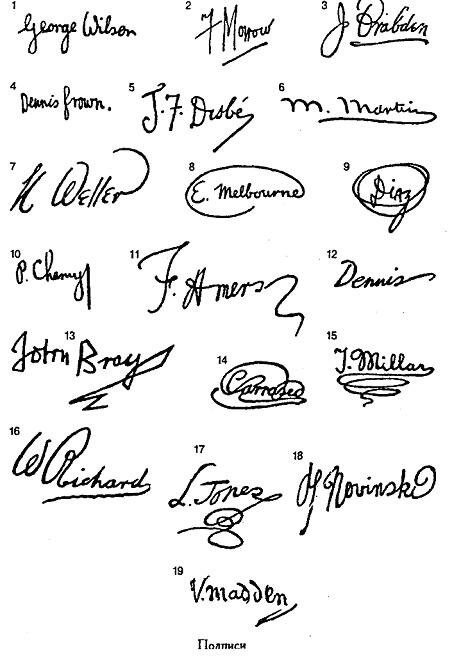 1
George Wilson
2
F Morrow
3
J Drabden
4
Dennis frown.
5
J. F. Disbé
6
M. Martin
7
K Weller
8
E. Melbourne
9
Diaz
10
P. Chamy
11
F. Amers
12
Dennis
13
John Bray
14
Carrased
15
T. Millar
16
W Richard
17
L. Jones
18
H. Novinski
19
V. madden
Подписи